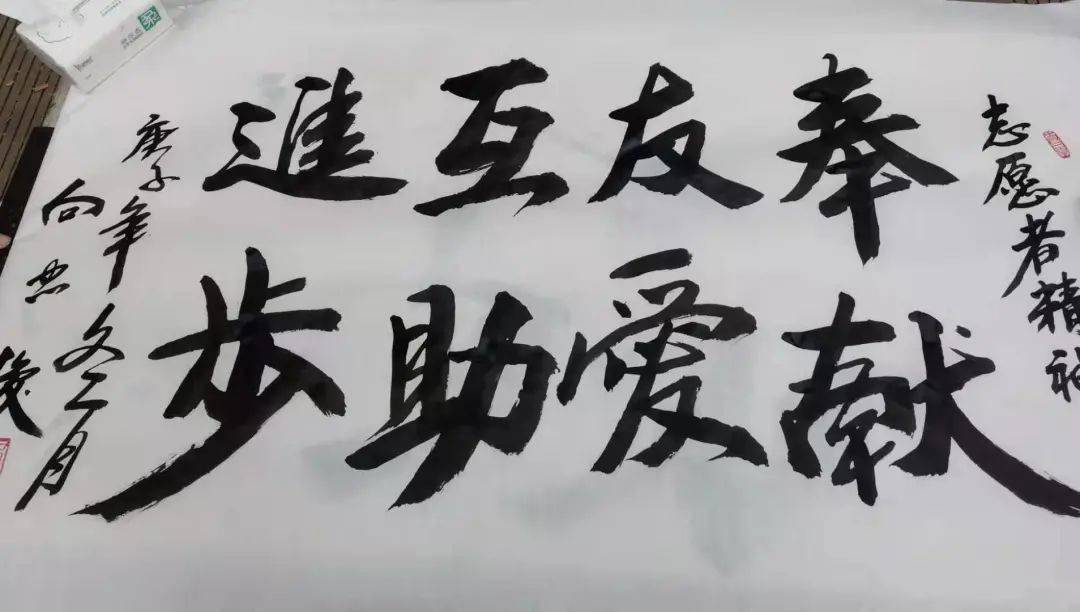 志愿者精神
奉献
友爱
互助
進步
庚子年冬二月
向忠